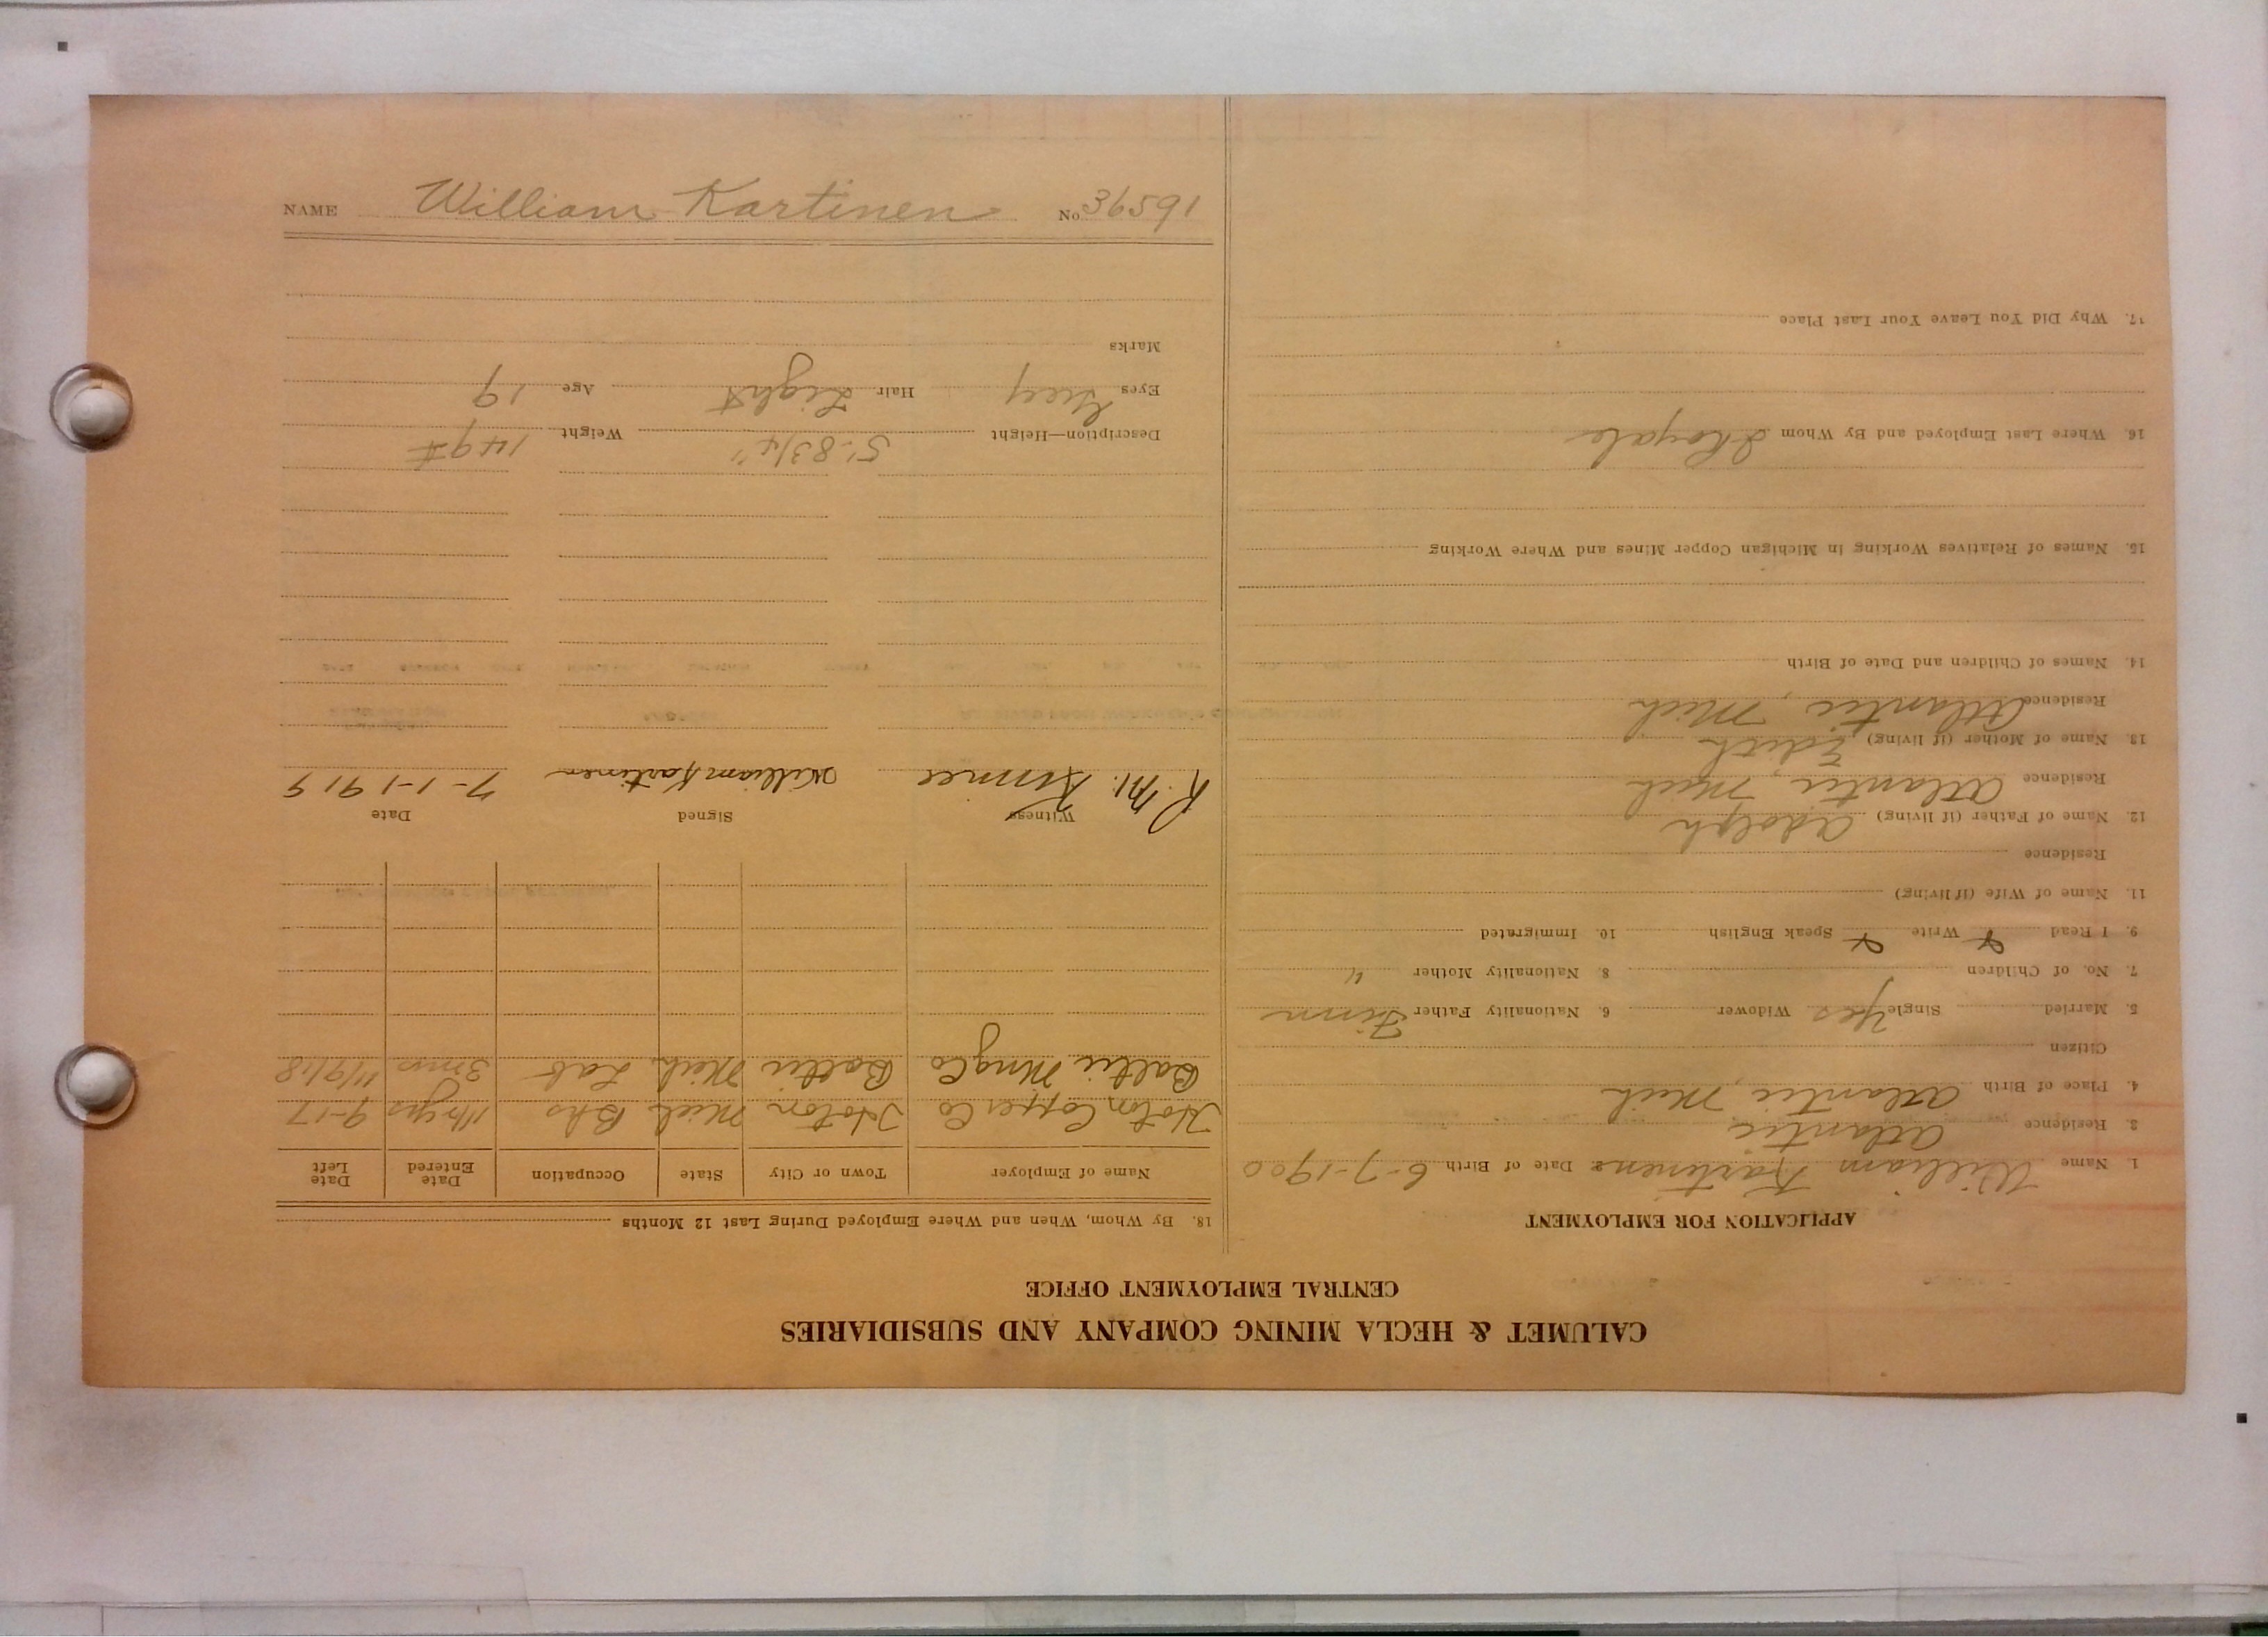 NAME William Kartinen No 36591
CALUMET & HECLA MINING COMPANY AND SUBSIDIARIES
CENTRAL EMPLOYMENT OFFICE
APPLICATION FOR EMPLOYMENT
1. Name William Kartinen 2. Date of Birth 6-7-1900
3. Residence Atlantic
4. Place of Birth Atlantic, Mich
Citizen
5. Married Single Yes Widower 6. Nationality Father Finn
7. No. of Children 8. Nationality Mother "
9. I Read Write Speak English 10. Immigrated
11. Name of Wife (if living)
Residence
12. Name of Father (if living) Adolph
Residence Atlantic, Mich
13. Name of Mother (if living) Edith
Residence Atlantic, Mich
14. Names of Children and Date of Birth
15. Names of Relatives Working in Michigan Copper Mines and Where Working
16. Where Last Employed and By Whom I Royale
17. Why Did You Leave Your Last Place
18. By Whom, When and Where Employed During Last 12 Months
Name of Employer Town or City State Occupation Date Entered Date Left
Hoton Copper Co Hoton Mich 9-17
Baltic Mng Co Baltic Mich. Lab 3 mos 11/9/18
Witness Signed Date
R. M. William Kartinen 7-1-1919
Description—Height 5'-8 3/4" Weight 149#
Eyes Grey Hair Light Age 19
Marks